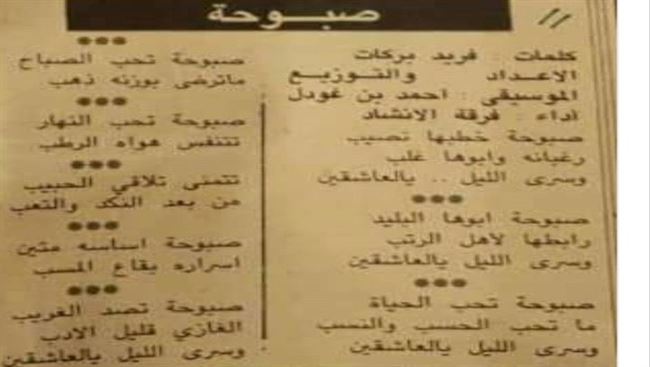 صبوحة
كلمات : فريد بركات
الاعداد والتوزيع
الموسيقي : احمد بن غودل
اداء : فرقة الانشاد
صبوحة خطبها نصيب
رغبانه وابوها غلب
وسرى الليل .. يالعاشقين
***
صبوحة ابوها البليد
رابطها لأهل الرتب
وسرى الليل يالعاشقين
***
صبوحة تحب الحياة
ما تحب الحسب والنسب
وسرى الليل يالعاشقين
***
صبوحة تحب الصباح
ماترضى بوزنه ذهب
***
صبوحة تحب النهار
تتنفس هواه الرطب
***
تتمنى تلاقي الحبيب
من بعد النكد والتعب
***
صبوحة اساسه متين
اسراره بقاع المسب
***
صبوحة تصد الغريب
الغازي قليل الادب
وسرى الليل يالعاشقين